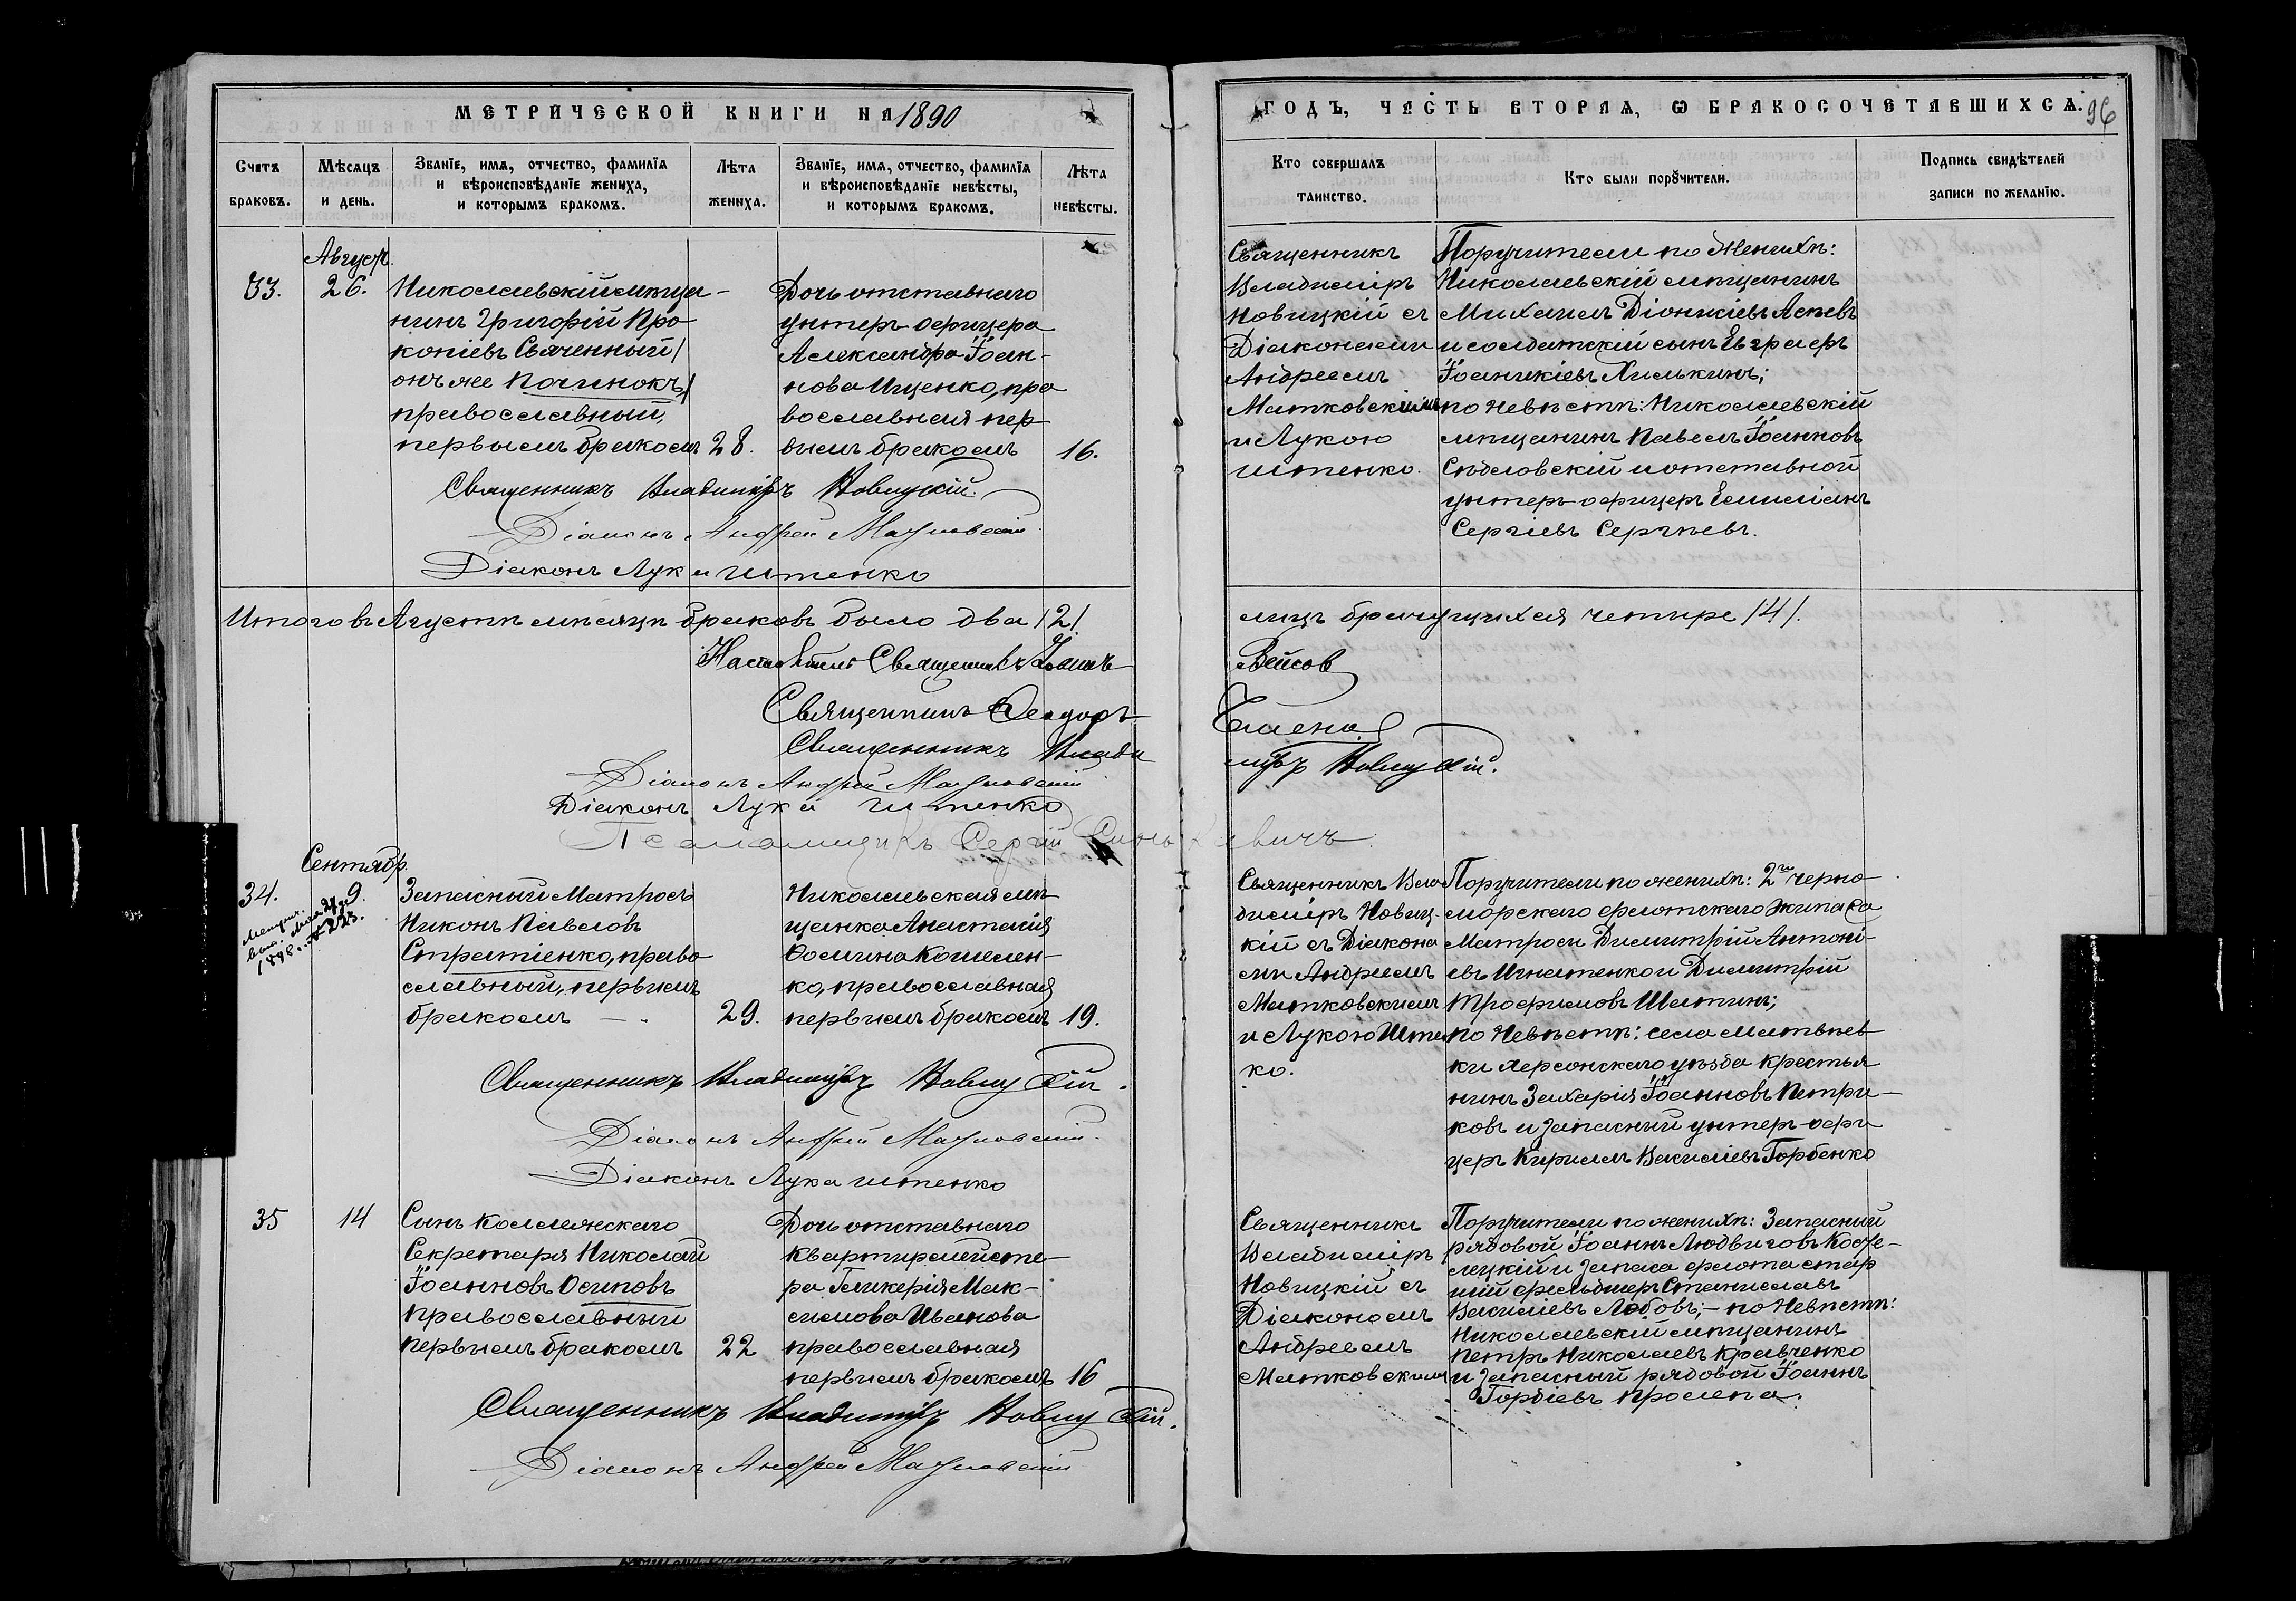 МЕТРИЧЕСКОЙ КНИГИ НА 1890
ГОДЪ, ЧАСТЬ ВТОРАЯ, Ѡ БРАКОСОЧЕТАВШИХСЯ.
96
Счетъ браковъ.
Мѣсяцъ и день.
Званїе, имя, отчество, фамилїя
и вѣроисповѣданїе жениха,
и которымъ бракомъ.
Лѣта жениха.
Званїе, имя, отчество, фамилїя
и вѣроисповѣданїе невѣсты,
и которымъ бракомъ.
Лѣта невѣсты.
Кто совершалъ
таинство.
Кто были порꙋчители.
Подпись свидѣтелей
записи по желанїю.
Август.
33.
26.
Николаевскій мѣща-
нинъ Григорій Про
копіевъ Свяченный /
онъ же Починокъ /
православный,
первымъ бракомъ
28.
Дочь отставнаго
унтеръ-офицера
Александра Іоан-
нова Ищенко, пра
вославная пер
вымъ бракомъ
16.
Священникъ
Владиміръ
Новицкій съ
Діаконами
Андреемъ
Матковскимъ
и Лукою
Иштенко.
Поручители по Женихѣ:
Николаевскій мѣщанинъ
Михаилъ Діонисіевъ
и солдатскій сынъ Евграфъ
Іоанникіевъ Хилькинъ;
по Невѣстѣ: Николаевскій
мѣщанинъ Павелъ Іоанновъ
Сѣдловскій и отставной
унтеръ-офицеръ Емиліанъ
Сергіевъ Сергѣевъ.
Священникъ Владиміръ Новицкій.
Діаконъ Андрей Матковскій
Діаконъ Лука Иштенко
Итого въ Августѣ мѣсяцѣ браковъ было два /2/
лицъ брачущихся четыре /4/.
Настоятель Священникъ
Священникъ Ѳеодоръ
Священникъ Влади
міръ Новицкій.
Діаконъ Андрей Матковскій
Діаконъ Лука Иштенко
Псаломщикъ Сергій
Сентябр.
34.
9.
Запасный Матросъ
Никонъ Павловъ
Стратіенко, право
славный, первымъ
бракомъ — .
29.
Николаевская мѣ
щанка Анастасія
Ѳомина Кошелен-
ко, православная
первымъ бракомъ
19.
Священникъ Вла
диміръ Новиц-
кій съ Діакона
ми Андреемъ
Матковскимъ
и Лукою Иштен
ко.
Поручители по женихѣ: 2го черно
морскаго флотскаго экипажа
Матросы Димитрій Антоні-
евъ Игнатенко и Димитрій
Трофимовъ Шатинъ;
по Невѣстѣ: села Матвѣев
ки херсонскаго уѣзда крестья
нинъ Захарія Іоанновъ Петри-
ковъ и запасный унтеръ-офи
церъ Кириллъ Василіевъ Горбенко
Священникъ Владиміръ Новицкій.
Діаконъ Андрей Матковскій.
Діаконъ Лука Иштенко
35
14
Сынъ Коллежскаго
Секретаря Николай
Іоанновъ Осиповъ
православный
первымъ бракомъ
22
Дочь отставнаго
квартирмейсте-
ра Гликерія Мак-
симова Иванова
православная
первымъ бракомъ
16
Священникъ
Владиміръ
Новицкій съ
Діакономъ
Андреемъ
Матковскимъ
Поручители по женихѣ: Запасный
рядовой Іоаннъ Людвиговъ
и запаса флота стар
шій фельдшеръ Станиславъ
Василіевъ — по Невѣстѣ:
Николаевскій мѣщанинъ
Петръ Николаевъ Кравченко
и запасный рядовой Іоаннъ
Гордіевъ
Священникъ Владиміръ Новицкій.
Діаконъ Андрей Матковскій